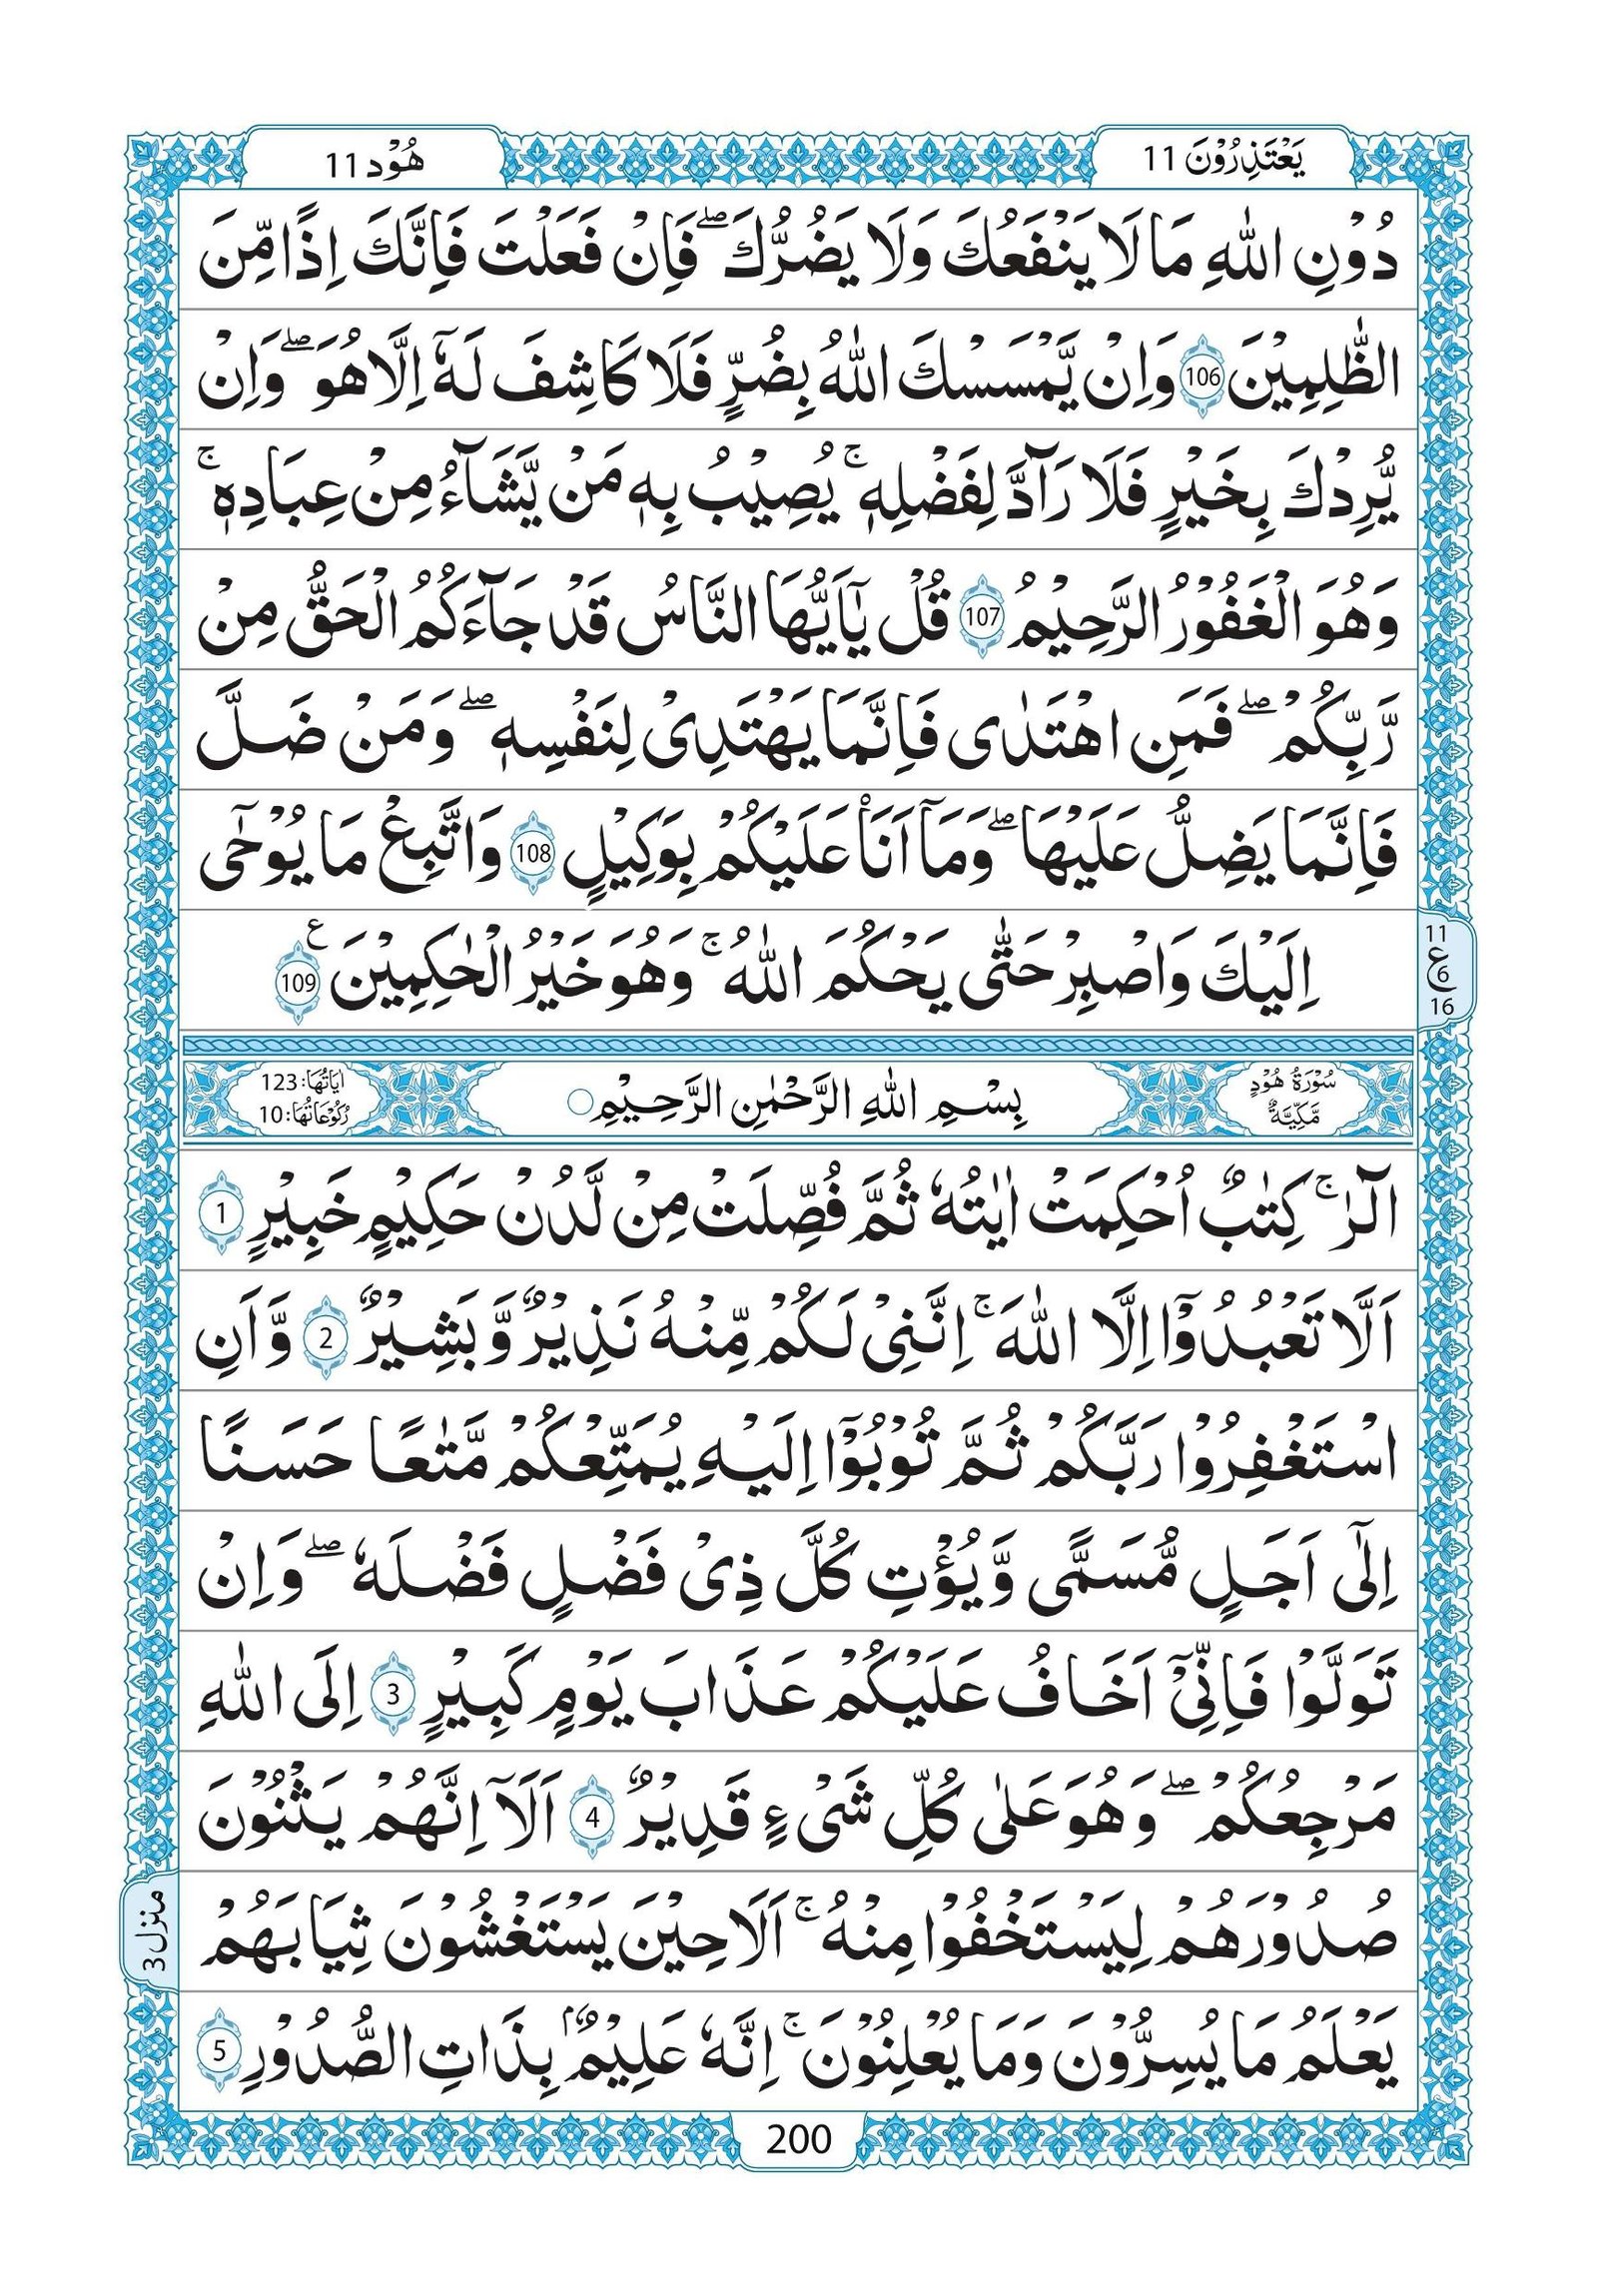 يَعْتَذِرُوْنَ 11
هُوْد 11
دُوْنِ اللّٰهِ مَا لَا يَنْفَعُكَ وَلَا يَضُرُّكَ ۖ فَاِنْ فَعَلْتَ فَاِنَّكَ اِذًا مِّنَ
الظّٰلِمِيْنَ 106 وَاِنْ يَّمْسَسْكَ اللّٰهُ بِضُرٍّ فَلَا كَاشِفَ لَهٗٓ اِلَّا هُوَ ۖ وَاِنْ
يُّرِدْكَ بِخَيْرٍ فَلَا رَآدَّ لِفَضْلِهٖ ۚ يُصِيْبُ بِهٖ مَنْ يَّشَآءُ مِنْ عِبَادِهٖ ۚ
وَهُوَ الْغَفُوْرُ الرَّحِيْمُ 107 قُلْ يٰٓاَيُّهَا النَّاسُ قَدْ جَآءَكُمُ الْحَقُّ مِنْ
رَّبِّكُمْ ۖ فَمَنِ اهْتَدٰى فَاِنَّمَا يَهْتَدِىْ لِنَفْسِهٖ ۖ وَمَنْ ضَلَّ
فَاِنَّمَا يَضِلُّ عَلَيْهَا ۖ وَمَآ اَنَا۠ عَلَيْكُمْ بِوَكِيْلٍ 108 وَاتَّبِعْ مَا يُوْحٰٓى
اِلَيْكَ وَاصْبِرْ حَتّٰى يَحْكُمَ اللّٰهُ ۚ وَهُوَ خَيْرُ الْحٰكِمِيْنَ 109 ع
11
ع 6
16
سُوْرَةُ هُوْدٍ
مَّكِّيَّةٌ
بِسْمِ اللّٰهِ الرَّحْمٰنِ الرَّحِيْمِ
اٰيَاتُهَا: 123
رُكُوْعَاتُهَا: 10
الٓرٰ ۚ كِتٰبٌ اُحْكِمَتْ اٰيٰتُهٗ ثُمَّ فُصِّلَتْ مِنْ لَّدُنْ حَكِيْمٍ خَبِيْرٍ 1
اَلَّا تَعْبُدُوْٓا اِلَّا اللّٰهَ ۚ اِنَّنِىْ لَكُمْ مِّنْهُ نَذِيْرٌ وَّبَشِيْرٌ 2 وَّاَنِ
اسْتَغْفِرُوْا رَبَّكُمْ ثُمَّ تُوْبُوْٓا اِلَيْهِ يُمَتِّعْكُمْ مَّتٰعًا حَسَنًا
اِلٰٓى اَجَلٍ مُّسَمًّى وَّيُؤْتِ كُلَّ ذِىْ فَضْلٍ فَضْلَهٗ ۖ وَاِنْ
تَوَلَّوْا فَاِنِّىْٓ اَخَافُ عَلَيْكُمْ عَذَابَ يَوْمٍ كَبِيْرٍ 3 اِلَى اللّٰهِ
مَرْجِعُكُمْ ۖ وَهُوَ عَلٰى كُلِّ شَىْءٍ قَدِيْرٌ 4 اَلَآ اِنَّهُمْ يَثْنُوْنَ
صُدُوْرَهُمْ لِيَسْتَخْفُوْا مِنْهُ ۚ اَلَا حِيْنَ يَسْتَغْشُوْنَ ثِيَابَهُمْ
يَعْلَمُ مَا يُسِرُّوْنَ وَمَا يُعْلِنُوْنَ ۚ اِنَّهٗ عَلِيْمٌۢ بِذَاتِ الصُّدُوْرِ 5
منزل 3
200